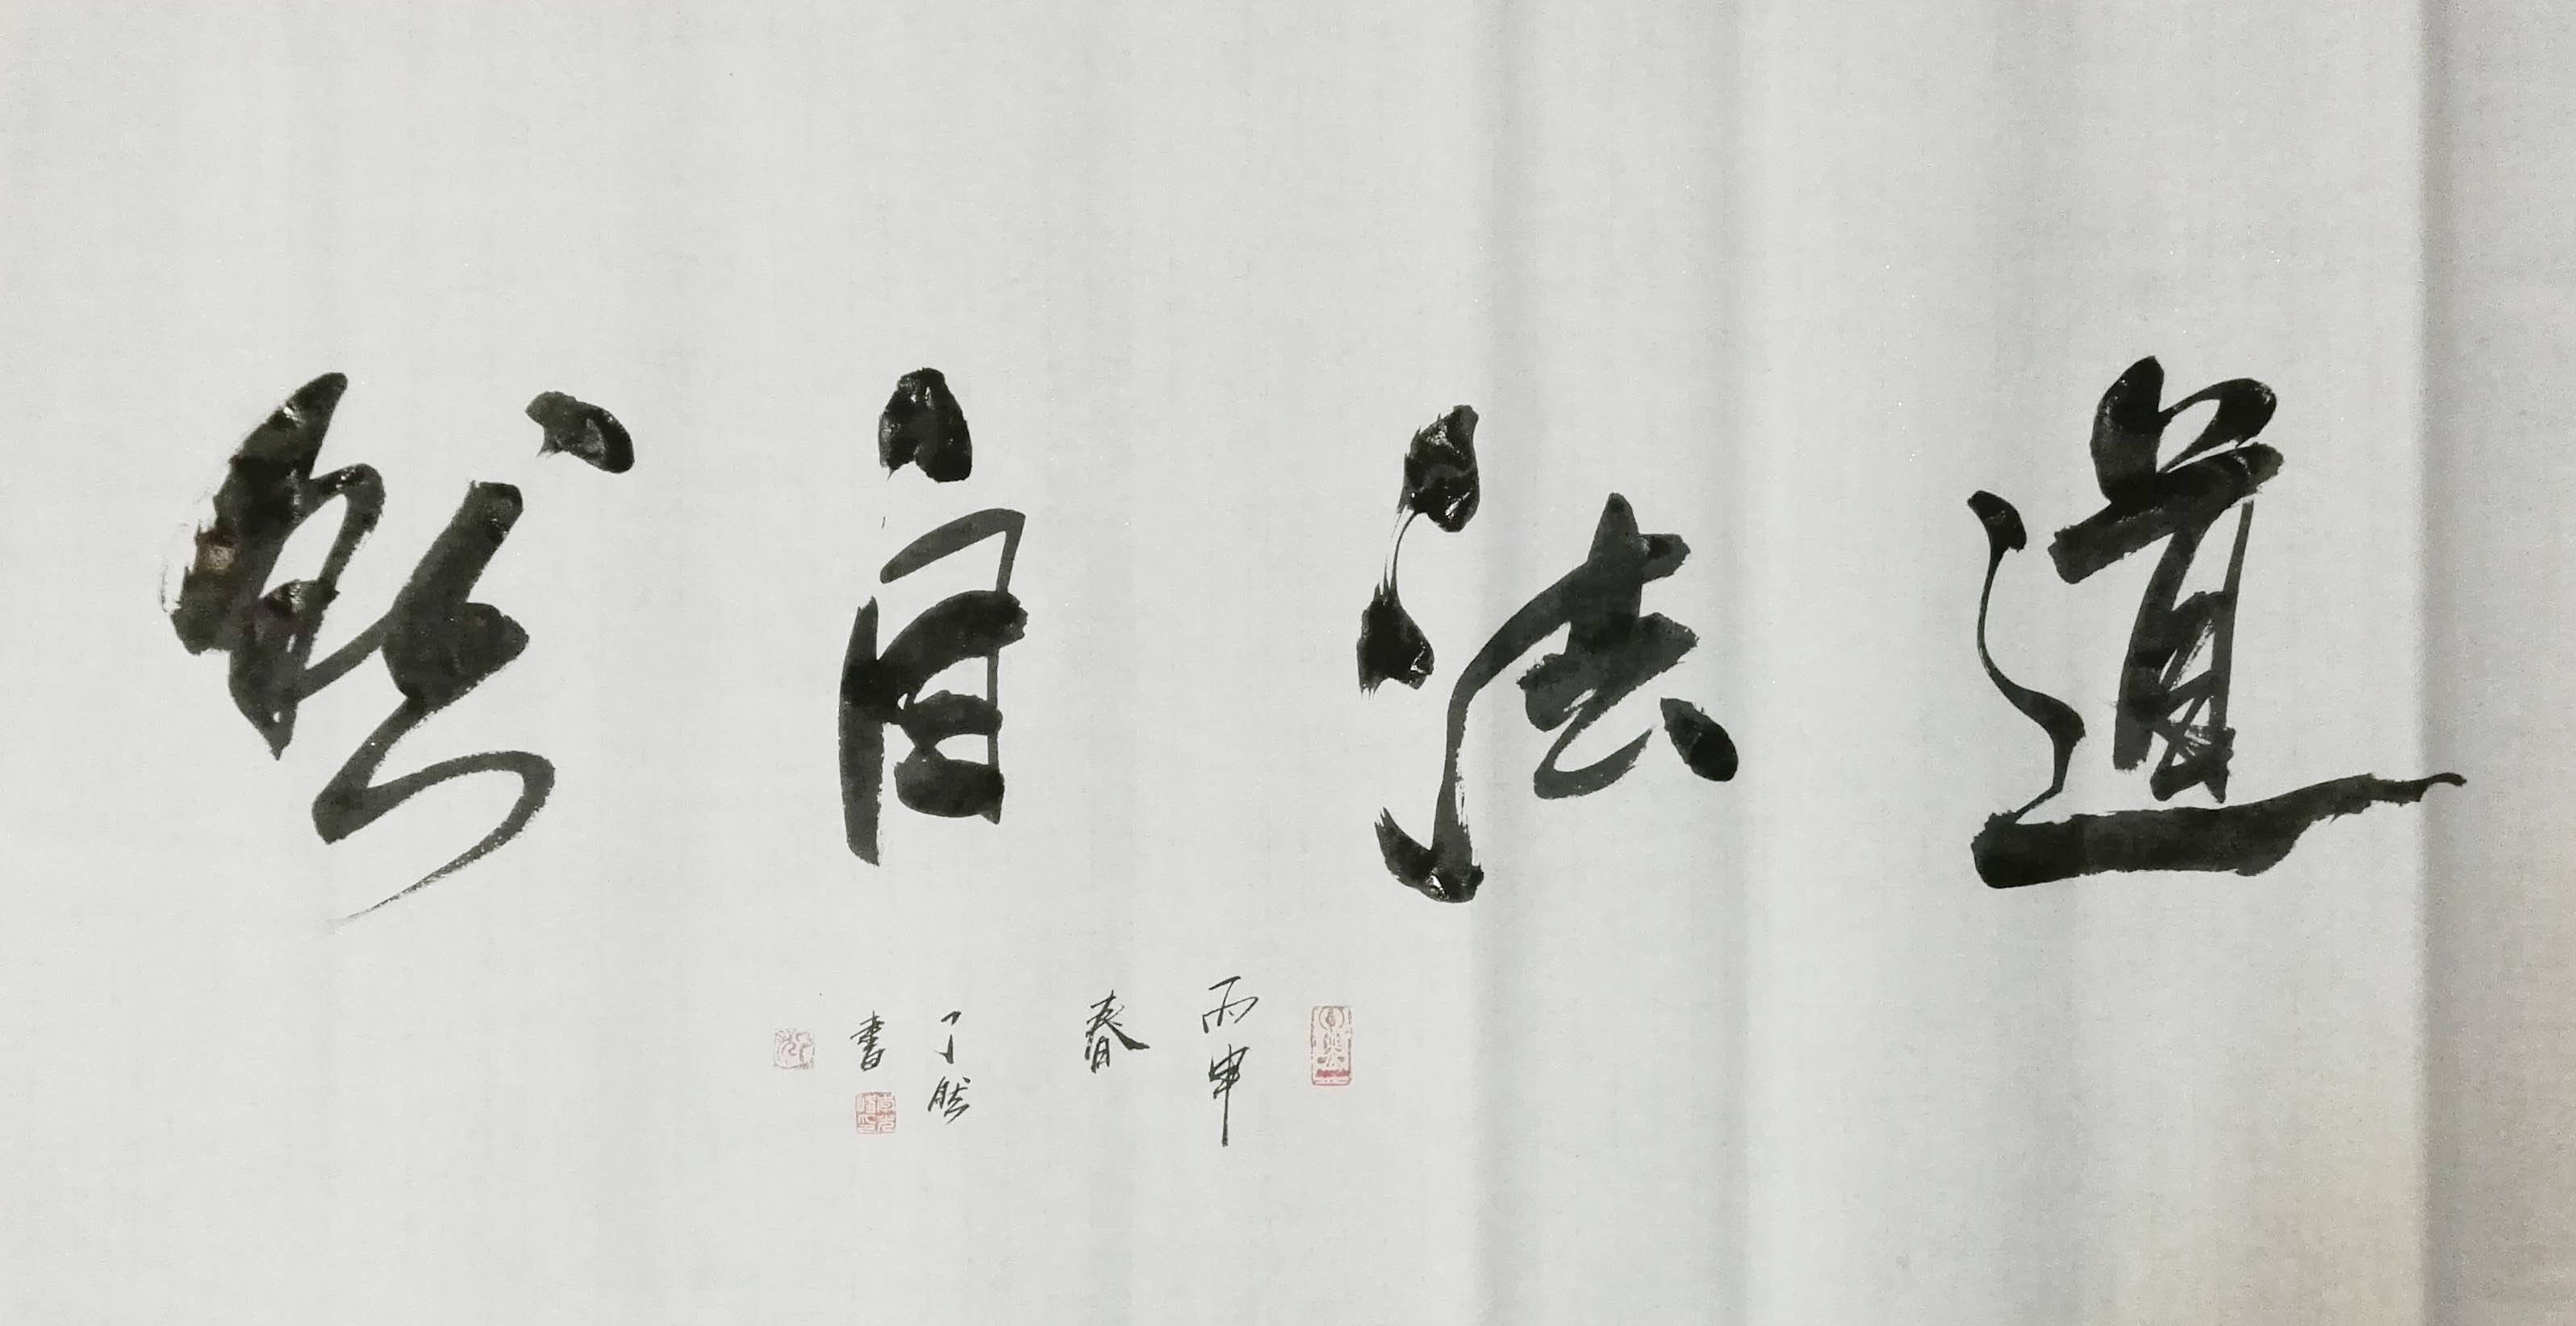 道法自然
丙申
春
了然
書